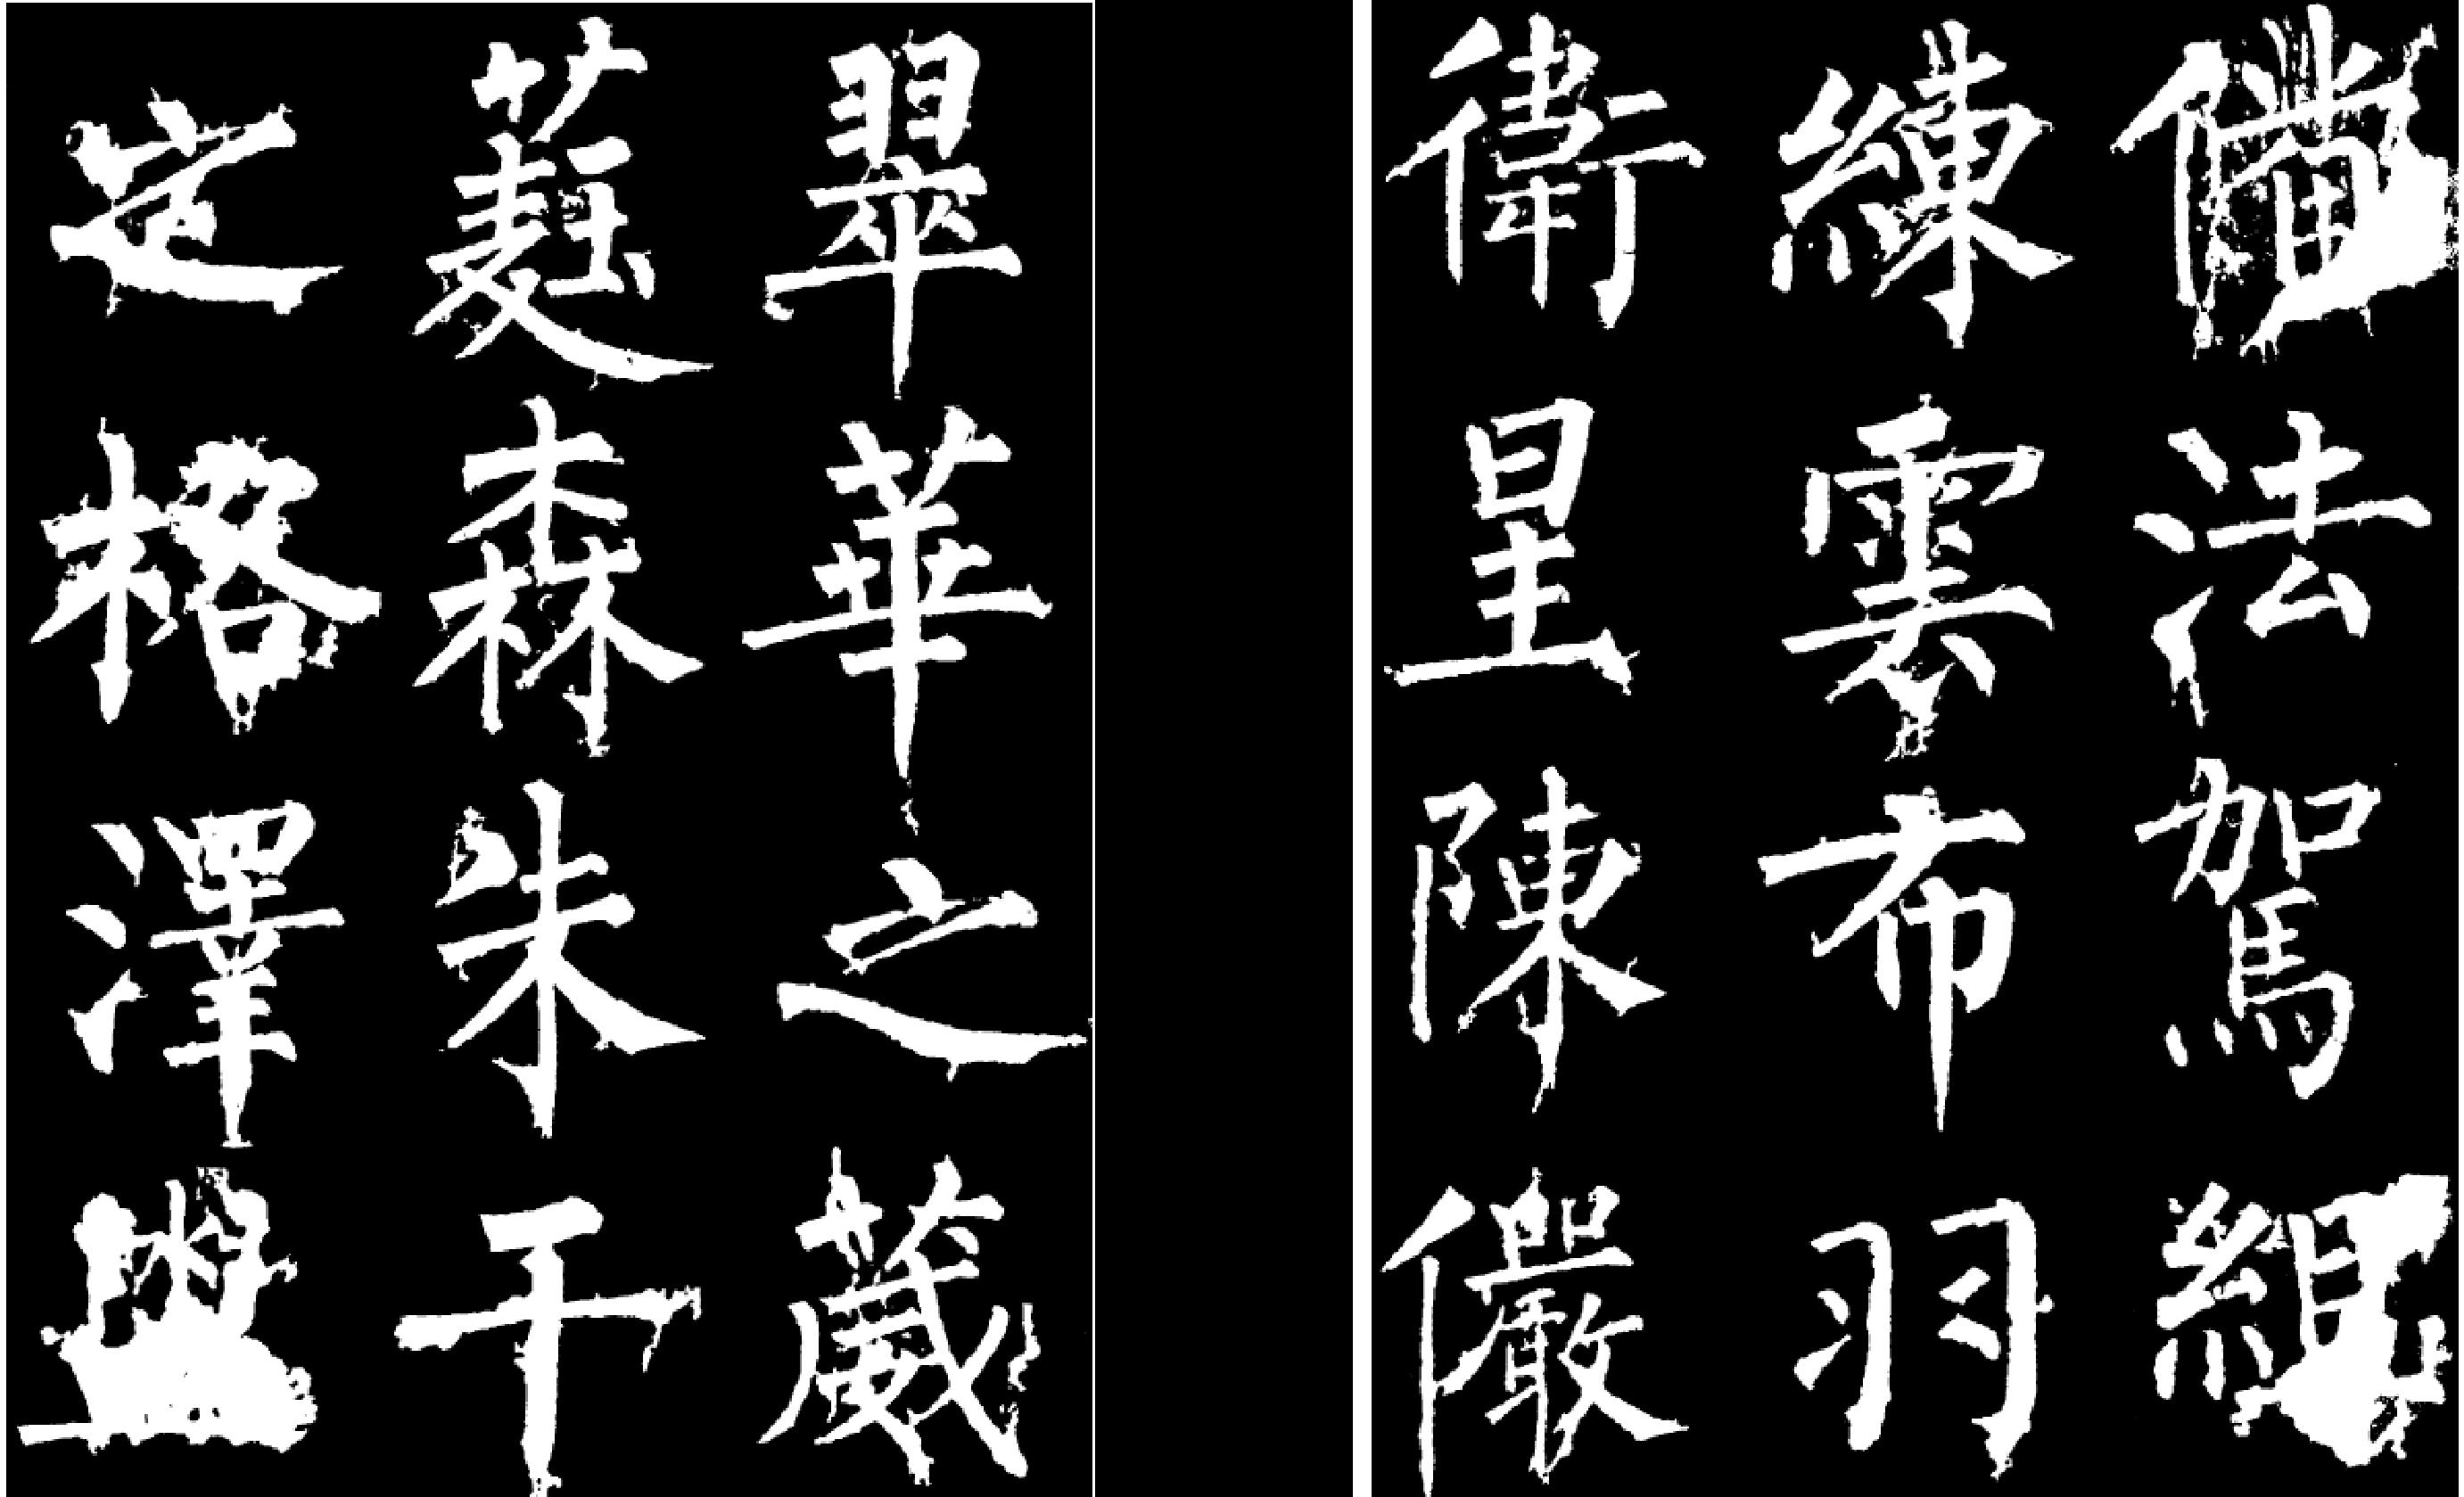 備法駕組
練雲布羽
衛星陳儼
翠華之葳
蕤森朱干
之格澤